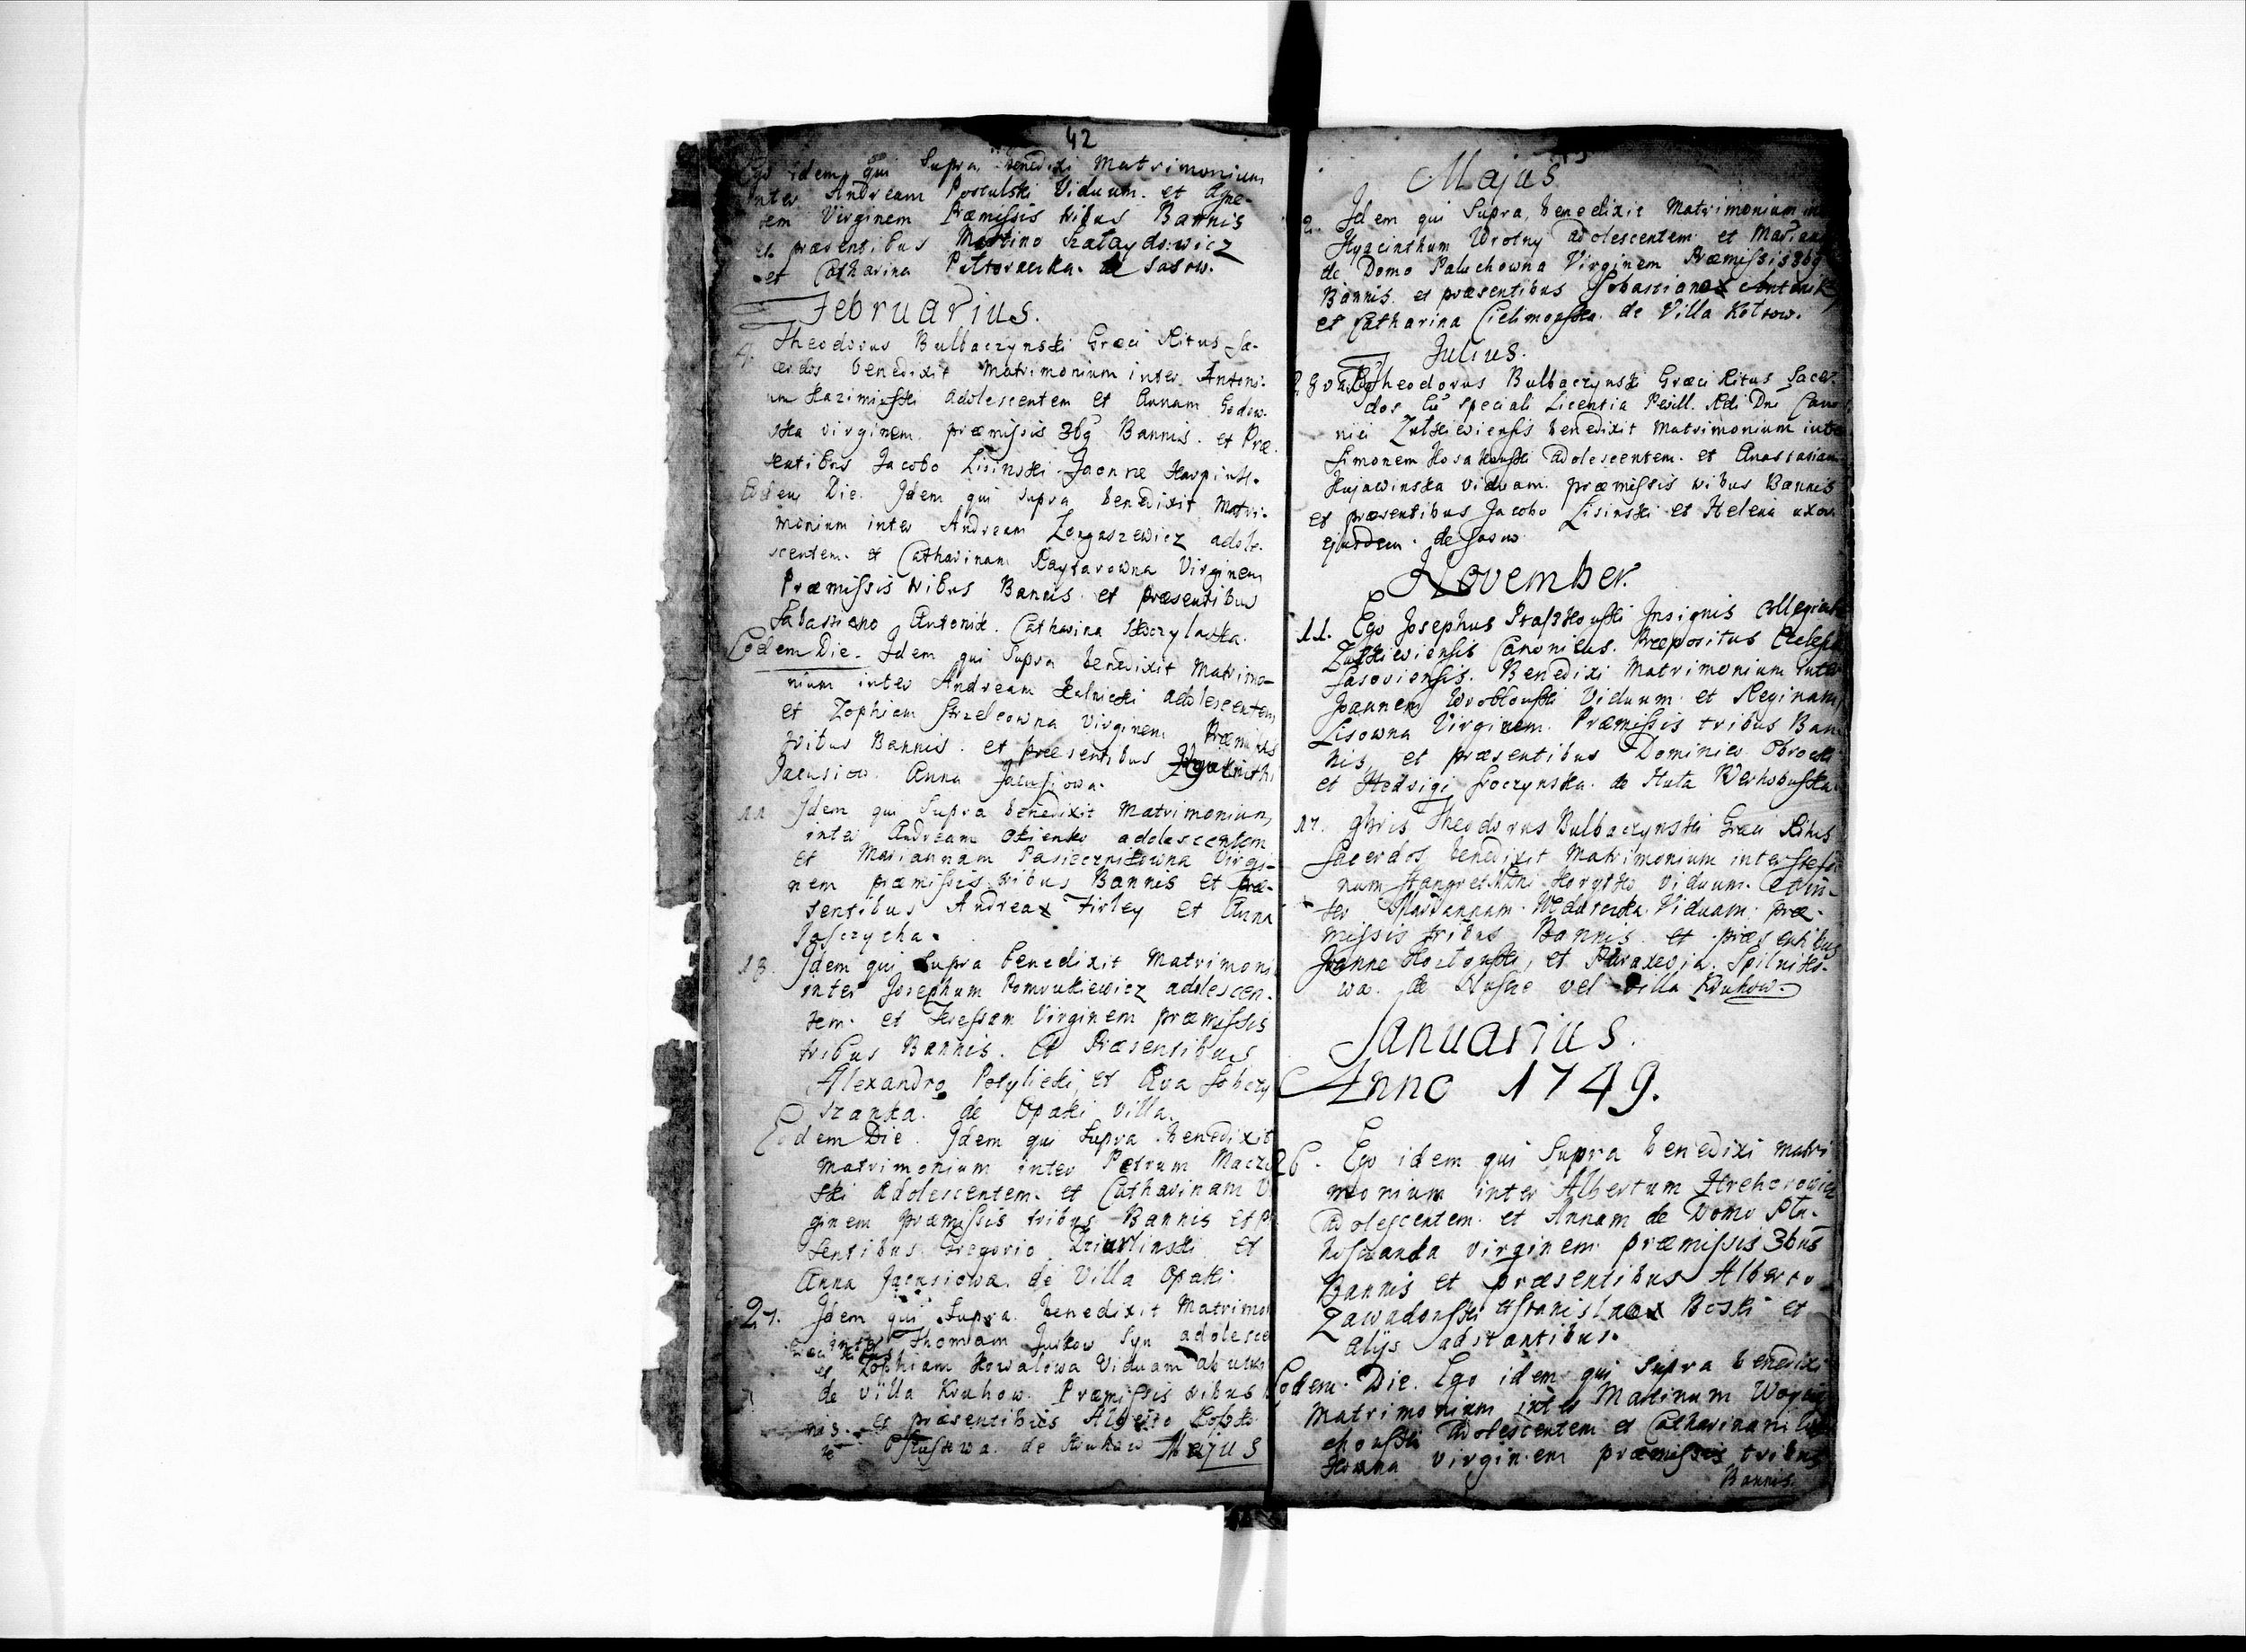 42
Ego idem qui Supra, benedixi Matrimonium
inter Andream Postulski Viduum. et Agne-
tem Virginem Præmissis tribus Bannis
et præsentibus Martino Szataydowicz
et Catharina de Sasow.
Februarius.
4. Theodorus Bulbaczynski Græci Ritus Sa-
cerdos benedixit Matrimonium inter Antoni-
um Kazimirski Adolescentem et Annam Godow-
ska virginem. præmissis 3bg Bannis. et Præ-
sentibus Jacobo Lisinski
Eodem Die. Idem qui Supra benedixit Matri-
monium inter Andream adole-
scentem. et Catharinam Raytarowna Virginem
Præmissis tribus Bannis. et præsentibus
Sabastiano Antonik. Catharina
Eodem Die. Idem qui Supra benedixit Matrimo-
nium inter Andream adolescentem
et Zophiam Strzelcowna Virginem Præmissis
tribus Bannis. et præsentibus
Jacusiow. Anna Jacusiowa.
11 Idem qui Supra benedixit Matrimonium
inter Andream Okienko adolescentem
et Mariannam Pasiecznikowna Virgi-
nem præmissis tribus Bannis et præ-
sentibus Andrea Firley et Anna
Jaszczycha.
18. Idem qui Supra benedixit Matrimoni
inter Josephum Pomrukiewicz adolescen-
tem. et Teressam Virginem præmissis
tribus Bannis. et Præsentibus
Alexandro Potylicki, et Ava Sobczy
szanka. de Opaki villa.
Eodem Die. Idem qui Supra benedixit
Matrimonium inter Petrum Macz
ski Adolescentem. et Catharinam Vi
ginem præmissis tribus Bannis et p
sentibus Gregorio et
Anna Jacusiowa. de Villa Opaki.
21. Idem qui Supra. benedixit Matrimo
inter Thomam Jurkow Syn adolesce
et Zophiam Kowalowa Viduam ab
de villa Kruhow. Præmissis tribus
nis. et præsentibus Alberto
de Kruhow Majus
Majus
2. Idem qui Supra, benedixit Matrimonium in
Hyacinthum Wrotny adolescentem et Marian
de Domo Paluchowna Virginem Præmissis 3bg
Bannis. et præsentibus Sobastiano Antonik
et Catharina de Villa Koltow.
Julius.
28 Theodorus Bulbaczynski Græci Ritus Sacer-
dos Cu speciali Licentia Perill. Rdi Dni Cano
nici Zulkieviensis benedixit Matrimonium inter
Simonem adolescentem. et Anastasiam
Kujawinska viduam. præmissis tribus Bannis
et præsentibus Jacobo Lisinski et Helena uxor
ejusdem. de Sasow
November.
11. Ego Josephus Insignis Collegiat
Zulkieviensis Canonicus. Præpositus Ecclesi
Sasoviensis. Benedixi Matrimonium inter
Joannem Wroblouski Viduum. et Reginam
Lisowna Virginem. Præmissis tribus Ban
nis, et præsentibus Dominico Obrocki
et Hedvigi Sroczynska. de Huta Werhobuska.
17. Theodorus Bulbaczynski Græci Ritus
Sacerdos benedixit Matrimonium inter Stefa
num Viduum.
Mariannam Viduam. præ-
missis tribus Bannis et præsentibus
Joanne et Paraxevia.
wa. de vel Villa Kruhow.
Januarius.
Anno 1749.
26. Ego idem qui Supra benedixi matri
monium inter Albertum Hrehorowicz
Adolescentem. et Annam de Domo
virginem præmissis 3bus
Bannis et præsentibus Alberto
Zawadouski Stanislao Boski et
alijs adstantibus.
Eodem. Die. Ego idem qui Supra benedixi
Matrimonium inter Matinum
chouski Adolescentem et Catharinam
virginem præmissis tribus
Bannis.